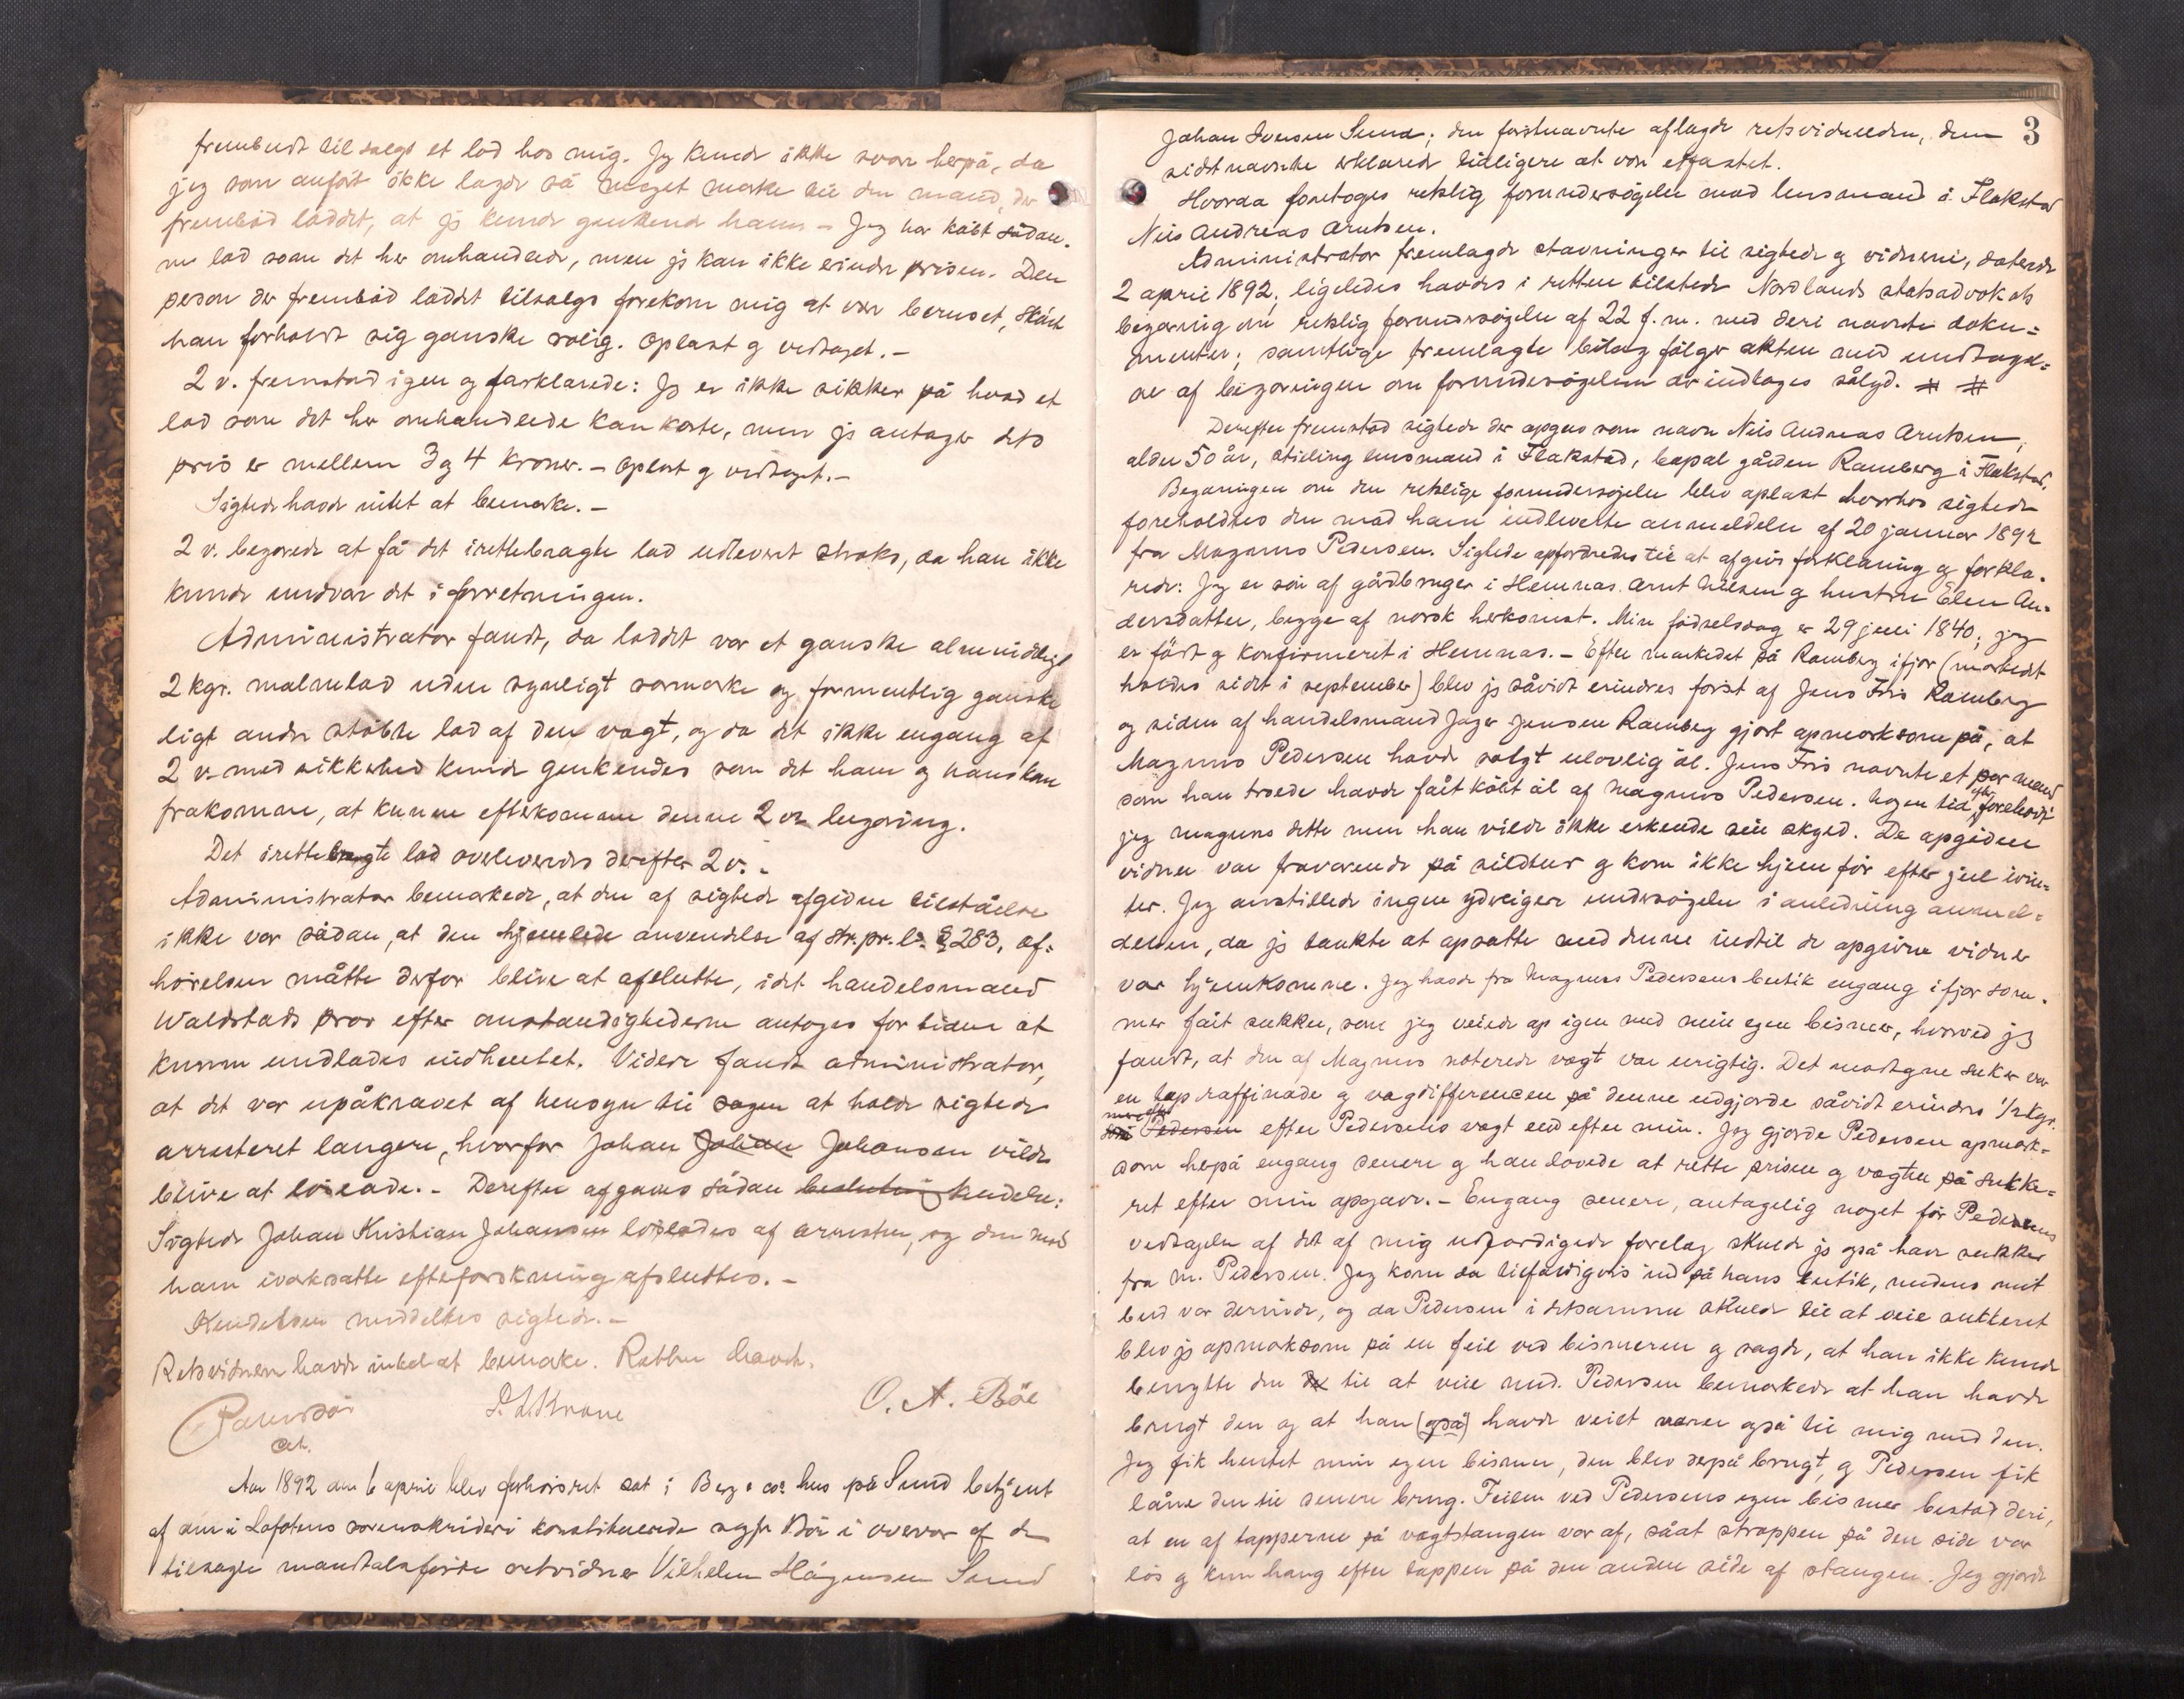 frembudt til salgs et lod hos mig. Jeg kunde ikke svare herpå, da
jeg som anført ikke lagde så meget mærke til den mand, der
frembød loddet, at jeg kunde genkende ham. – Jeg har købt sådan-
ne lod som det her omhandlede, men jeg kan ikke erindre prisen. Den
person der frembød loddet tilsalgs forekom mig at være beruset, skønt
han forholdt sig ganske rolig. Oplæst og vedtaget. –
2 v. fremstod igen og forklarede: Jeg er ikke sikker på hvad et
lod som det her omhandlede kan koste, men jeg antager dets
pris er mellem 3 og 4 kroner. – Oplæst og vedtaget. –
Sigtede havde intet at bemærke. –
2 v. begærede at få det irettebragte lod udleveret straks, da han ikke
kunde undvære det i forretningen.
Administrator fandt, da loddet var et ganske almindeligt
2 kgr. malmlod uden synligt særmærke og formentlig ganske
ligt andre støbte lod af den vægt, og da det ikke engang af
2 v. med sikkerhed kunde genkendes som det ham og hans
frakomne, at kunne efterkomme denne 2 v. begæring.
Det irettebragte lod overleveredes derefter 2 v. –
Administrator bemærkede, at den af sigtede afgivne tilståelse
ikke var sådan, at den hjemlede anvendelse af str.pr.l. § 283. Af-
hørelsen måtte derfor blive at afslutte, idet handelsmand
Waldstads prov efter omstændighederne antoges for tiden at
kunne undlades indhentet. Videre fandt administrator,
at det var upåkrævet af hensyn til sagen at holde sigtede
arresteret længere, hvorfor Johan Johan Johansen vilde
blive at løslade. – Derefter afgaves sådan beslutning kendelse:
Sigtede Johan Kristian Johansen løslades af arresten, og den mod
ham iværksatte efterforskning afsluttes. –
Kendelsen meddeltes sigtede. –
Retsvidnerne havde intet at bemærke. Retten hævet.
O. A. Böe
ct.
Aar 1892 den 6 april blev forhørsret sat i Berg & co's hus på Sund betjent
af den i Lofotens sorenskriveri konstituerede sagfr Bör i overvær af de
tilsagte mandtalsførte retsvidner Vilhelm Hågensen Sund
3
Johan Iversen Sund; den førstnævnte aflagde retsvidneeden, den
sidstnævnte erklærede tidligere at være edfæstet.
Hvorda foretoges retslig forundersøgelse mod lensmand i Flakstad
Nils Andreas Arntsen.
Administrator fremlagde stævninger til sigtede og vidnerne, daterede
2 april 1892; ligeledes havdes i retten tilstede Nordlands statsadvokats
begæring om retslig forundersøgelse af 22 f. m. med deri nævnte doku-
menter; samtlige fremlagte bilag følger akten med undtagel-
se af begæringen om forundersøgelsen der indtages sålyd. # #
Derefter fremstod sigtede der opgav som navn Nils Andreas Arntsen,
alder 50 år, stilling lensmand i Flakstad, bopæl gården Ramberg i Flakstad.
Begæringen om den retslige forundersøgelse blev oplæst hvorhos sigtede
foreholdtes den mod ham indleverte anmeldelse af 20 januar 1892
fra Magnus Pedersen. Sigtede opfordredes til at afgive forklaring og forkla-
rede: Jeg er søn af gårdbruger i Hemnæs Arnt Nilsen og hustru Elen An-
dersdatter, begge af norsk herkomst. Min fødselsdag er 29 juni 1840; jeg
er født og konfirmeret i Hemnæs. – Efter markedet på Ramberg ifjor (markedet
holdes sidst i september) blev jeg såvidt erindres først af Jens Fris Ramberg
og siden af handelsmand Jæger Jensen Ramberg gjort opmærksom på, at
Magnus Pedersen havde solgt ulovlig øl. Jens Fris nævnte et par mænd
som han troede havde fået købt øl af Magnus Pedersen. Nogen tid efter foreholdt
jeg Magnus dette men han vilde ikke erkende sin skyld. De opgivne
vidner var fraværende på sildtur og kom ikke hjem før efter jul ivin-
ter. Jeg anstillede ingen yderligere undersøgelse i anledning anmel-
delsen, da jeg tænkte at opsætte med denne indtil de opgivne vidner
var hjemkomne. Jeg havde fra Magnus Pedersens butik engang ifjor som-
mer fået sukker, som jeg veiede op igen med min egen bismer, hvorved jeg
fandt, at den af Magnus noterede vægt var urigtig. Det modtagne suker var
en top raffinade og vægdifferencen på denne udgjorde såvidt erindres 1/2 kgr.
mere efter Pedersens vægt end efter min. Jeg gjorde Pedersen opmærk-
som herpå engang senere og han lovede at rette prisen og vægten på sukke-
ret efter min opgave. – Engang senere, antagelig noget før Pedersens
vedtagelse af det af mig udfærdigede forelæg skulde jeg også have sukker
fra M. Pedersen. Jeg kom da tilfældigvis ind på hans butik, medens mit
bud var derinde, og da Pedersen i detsamme skulde til at veie sukkeret
blev jeg opmærksom på en feil ved bismeren og sagde, at han ikke kunde
benytte den til at veie med. Pedersen bemærkede at han havde
brugt den og at han (også) havde veiet varer også til mig med den.
Jeg fik hentet min egen bismer, den blev derpå brugt, og Pedersen fik
låne den til senere brug. Feilen ved Pedersens egen bismer bestod deri,
at en af tapperne på vægtstangen var af, såat stroppen på den side var
løs og kun hang efter tappen på den anden side af stangen. Jeg gjorde